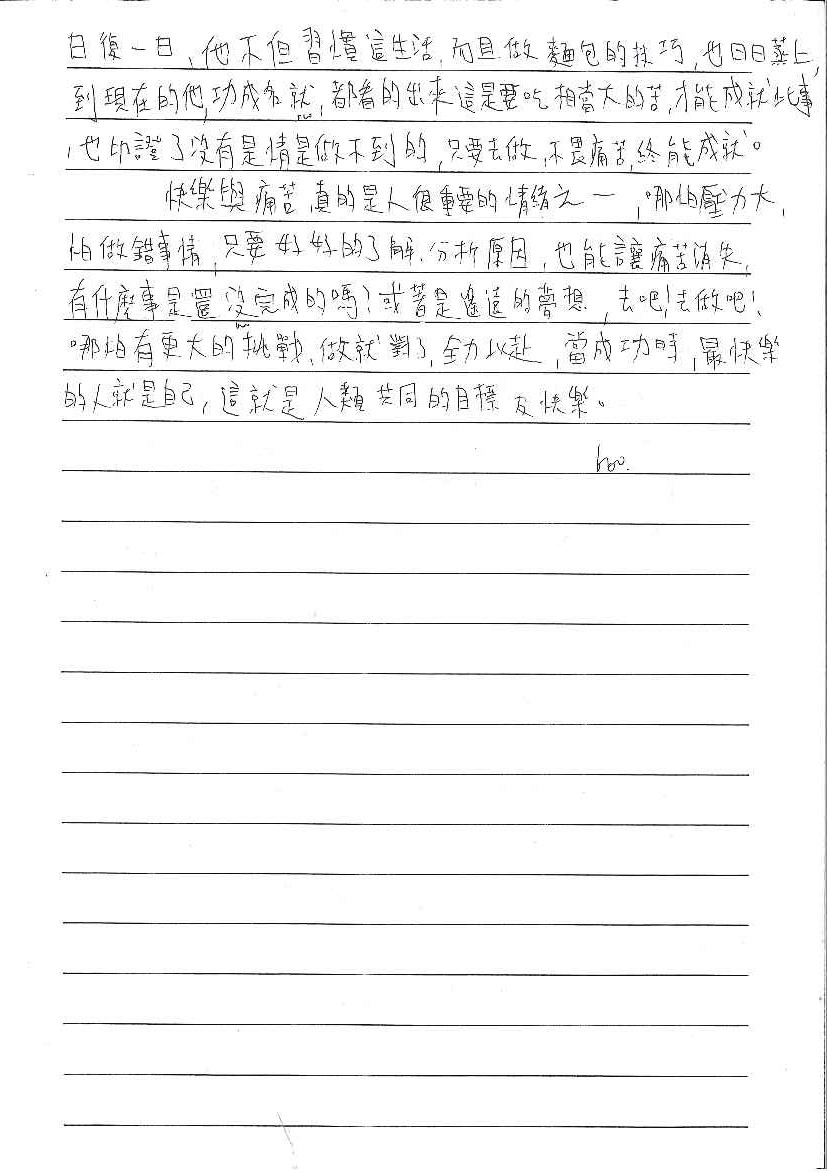 日復一日、他不但習慣這生活,而且做麵包的技巧,也日日蒸上,
到現在的他,功成名就,都看的出來這是要吃相當大的苦,才能成就此事
,也印證了沒有是情是做不到的,只要去做,不畏痛苦,終能成就。
快樂與痛苦真的是人很重要的情緒之一,哪怕壓力大,
怕做錯事情,只要好好的了解、分析原因,也能讓痛苦消失,
有什麼事是還沒完成的嗎?或著是遙遠的夢想,去吧!去做吧!
哪怕有更大的挑戰、做就對了,全力以赴,當成功時,最快樂
的人就是自己,這就是人類共同的目標及快樂。